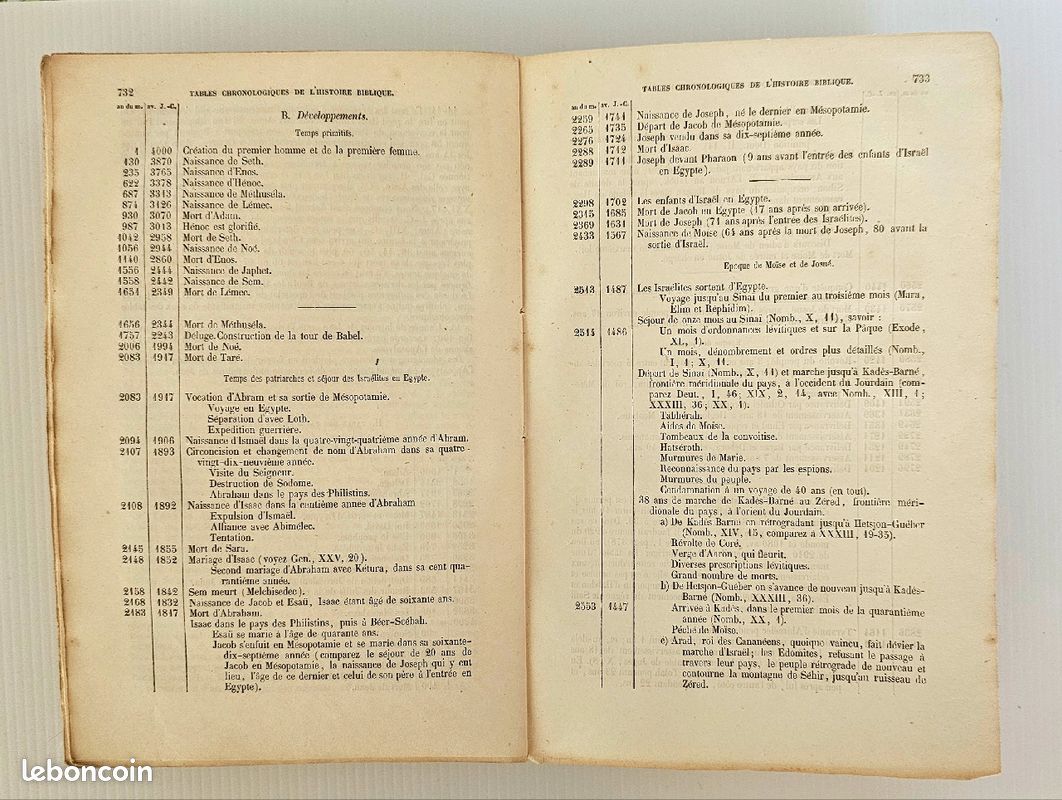 732
TABLES CHRONOLOGIQUES DE L'HISTOIRE BIBLIQUE.
an du m. av. J.-C.
B. Développements.
Temps primitifs.
1 4000 Création du premier homme et de la première femme.
130 3870 Naissance de Seth.
235 3765 Naissance d'Enos.
622 3378 Naissance d'Hénoc.
687 3313 Naissance de Méthuséla.
874 3126 Naissance de Lémec.
930 3070 Mort d'Adam.
987 3013 Hénoc est glorifié.
1042 2958 Mort de Seth.
1056 2944 Naissance de Noé.
1140 2860 Mort d'Enos.
1556 2444 Naissance de Japhet.
1558 2442 Naissance de Sem.
1651 2349 Mort de Lémec.
1656 2344 Mort de Méthuséla.
1757 2243 Déluge. Construction de la tour de Babel.
2006 1994 Mort de Noé.
2083 1917 Mort de Taré.
Temps des patriarches et séjour des Israélites en Egypte.
2083 1917 Vocation d'Abram et sa sortie de Mésopotamie.
Voyage en Egypte.
Séparation d'avec Loth.
Expédition guerrière.
2094 1906 Naissance d'Ismaël dans la quatre-vingt-quatrième année d'Abram.
2107 1893 Circoncision et changement de nom d'Abraham dans sa quatre-
vingt-dix-neuvième année.
Visite du Seigneur.
Destruction de Sodome.
Abraham dans le pays des Philistins.
2108 1892 Naissance d'Isaac dans la centième année d'Abraham
Expulsion d'Ismaël.
Alliance avec Abimélec.
Tentation.
2145 1855 Mort de Sara.
2148 1852 Mariage d'Isaac (voyez Gen., XXV, 20).
Second mariage d'Abraham avec Kétura, dans sa cent qua-
rantième année.
2158 1842 Sem meurt (Melchisedec).
2168 1832 Naissance de Jacob et Esaü, Isaac étant âgé de soixante ans.
2183 1817 Mort d'Abraham.
Isaac dans le pays des Philistins, puis à Béer-Scébah.
Esaü se marie à l'âge de quarante ans.
Jacob s'enfuit en Mésopotamie et se marie dans sa soixante-
dix-septième année (comparez le séjour de 20 ans de
Jacob en Mésopotamie, la naissance de Joseph qui y eut
lieu, l'âge de ce dernier et celui de son père à l'entrée en
Egypte).
TABLES CHRONOLOGIQUES DE L'HISTOIRE BIBLIQUE.
733
an du m. av. J.-C.
2259 1741 Naissance de Joseph, né le dernier en Mésopotamie.
2265 1735 Départ de Jacob de Mésopotamie.
2276 1724 Joseph vendu dans sa dix-septième année.
2288 1712 Mort d'Isaac.
2289 1711 Joseph devant Pharaon (9 ans avant l'entrée des enfants d'Israël
en Egypte).
2298 1702 Les enfants d'Israël en Egypte.
2315 1685 Mort de Jacob en Egypte (17 ans après son arrivée).
2369 1631 Mort de Joseph (71 ans après l'entrée des Israélites).
2433 1567 Naissance de Moïse (64 ans après la mort de Joseph, 80 avant la
sortie d'Israël.
Epoque de Moïse et de Josué.
2513 1487 Les Israélites sortent d'Egypte.
Voyage jusqu'au Sinaï du premier au troisième mois (Mara,
Elim et Réphidim).
Séjour de onze mois au Sinaï (Nomb., X, 11), savoir :
2514 1486 Un mois d'ordonnances lévitiques et sur la Pâque (Exode,
XL, 1).
Un mois, dénombrement et ordres plus détaillés (Nomb.,
I, 1; X, 11.
Départ de Sinaï (Nomb., X, 11) et marche jusqu'à Kadès-Barné,
frontière méridionale du pays, à l'occident du Jourdain (com-
parez Deut., I, 46; XIX, 2, 14, avec Nomb., XIII, 1;
XXXIII, 36; XX, 1).
Tabhérah.
Aides de Moïse.
Tombeaux de la convoitise.
Hatséroth.
Murmures de Marie.
Reconnaissance du pays par les espions.
Murmures du peuple.
Condamnation à un voyage de 40 ans (en tout).
38 ans de marche de Kadès-Barné au Zéred, frontière méri-
dionale du pays, à l'orient du Jourdain.
a) De Kadès Barné en rétrogradant jusqu'à Hetsjon-Guéber
(Nomb., XIV, 15, comparez à XXXIII, 19-35).
Révolte de Coré.
Verge d'Aaron, qui fleurit.
Diverses prescriptions lévitiques.
Grand nombre de morts.
b) De Hetsjon-Guéber on s'avance de nouveau jusqu'à Kadès-
Barné (Nomb., XXXIII, 36).
2553 1447 Arrivée à Kadès, dans le premier mois de la quarantième
année (Nomb., XX, 1).
Péché de Moïse.
c) Arad, roi des Cananéens, quoique vaincu, fait dévier la
marche d'Israël; les Edomites, refusant le passage à
travers leur pays, le peuple rétrograde de nouveau et
contourne la montagne de Séhir, jusqu'au ruisseau de
Zéred.
leboncoin